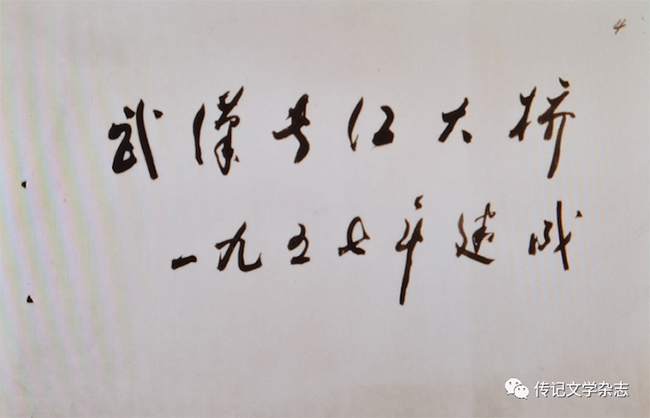 4
武漢长江大桥
一九五七年建成
传记文学杂志